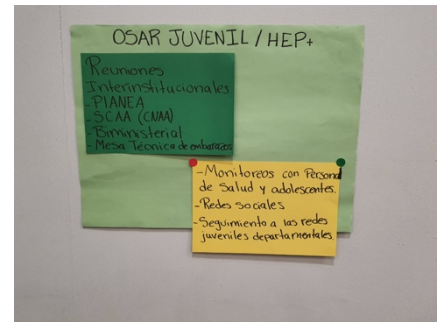 OSAR JUVENIL / HEP+
Reuniones
Interinstitucionales
- PIANEA
- SCAA (CNAA)
- Biministerial
- Mesa Técnica de embarazos
- Monitoreos con Personal
de Salud y adolescentes.
- Redes sociales
- Seguimiento a las redes
juveniles departamentales.